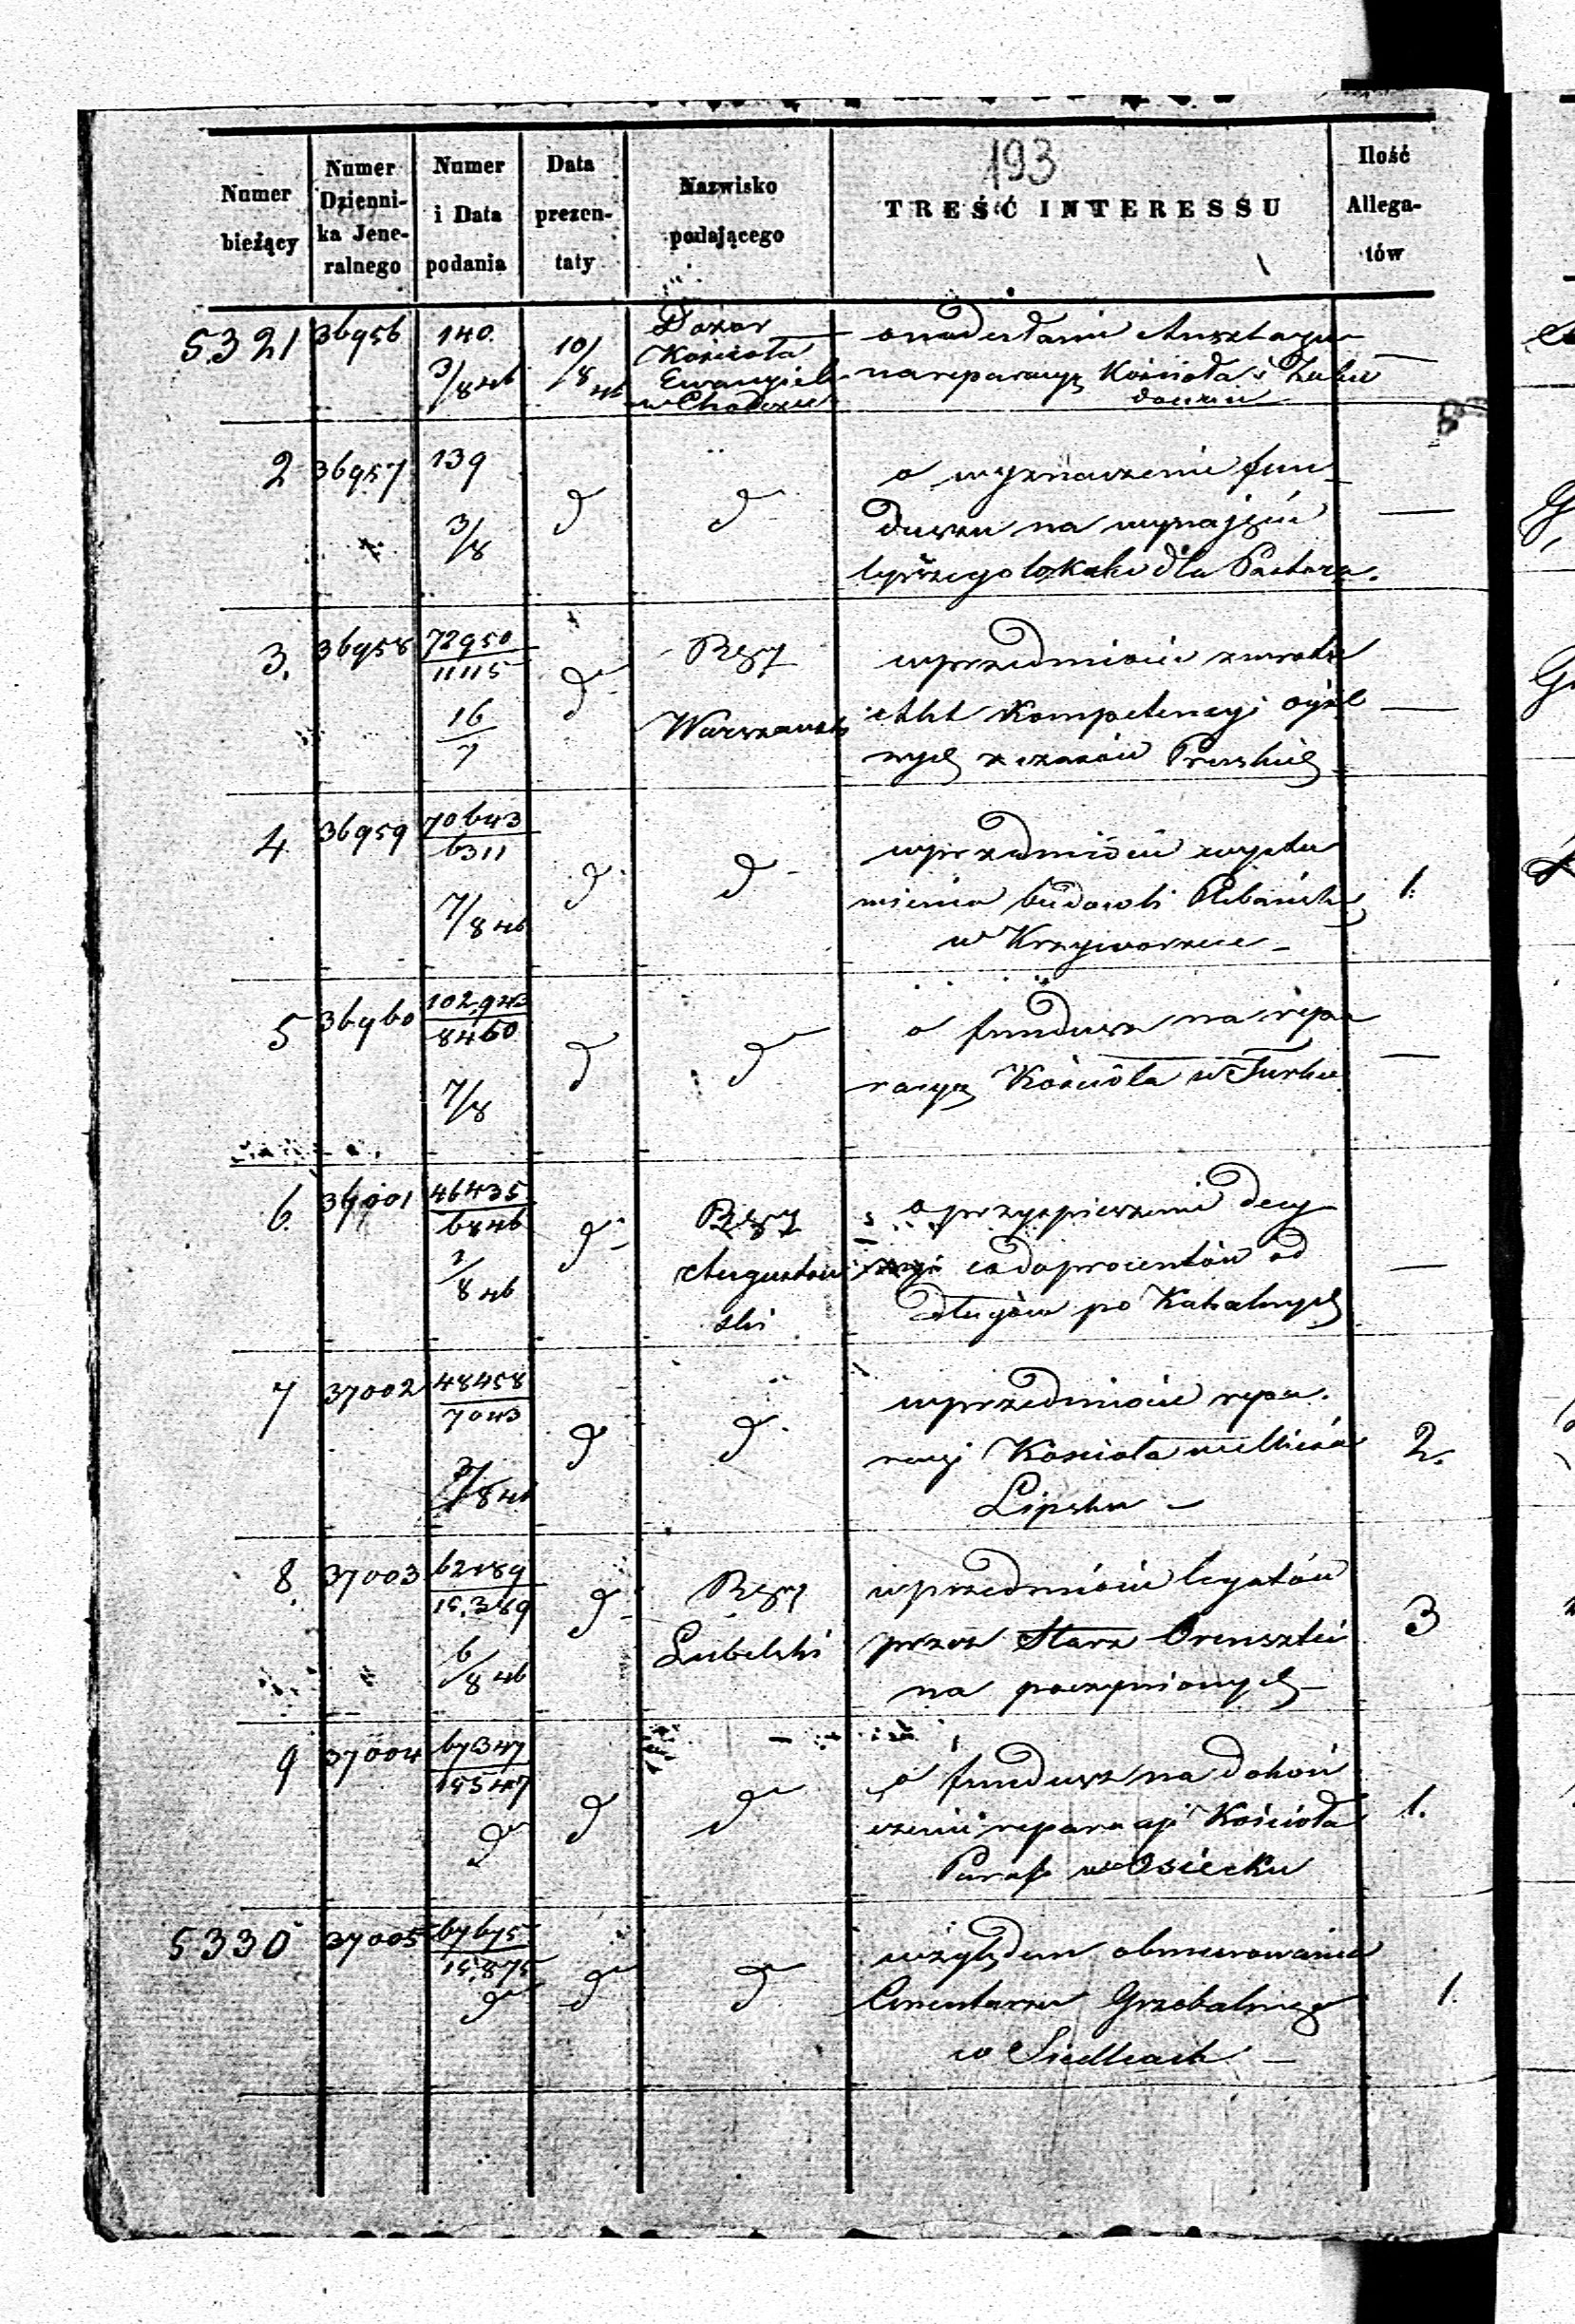 193
Numer bieżący
Numer Dzienni- ka Jene- ralnego
Numer i Data podania
Data prezen- taty
Nazwisko podającego
TREŚĆ INTERESSU
Ilość Allega- tów
5321 36956 140. 3/8 46 10/8 46
Dozór
Kościoła
Ewangiel
w Chodczu
o nadesłanie Anszlagu
na reparacyą Kościoła i Zabu
dowań
—
2 36957 139 3/8 d d
o wyznaczenie fun-
duszu na wynajęcie
lepszego lokalu dla Pastora.
—
3. 36958 72950/11115 16/7 d
Rząd
Warszawsk
w przedmiocie zwrotu
Akt Kompetencyi
nych z czasów Pruskich
—
4 36959 70643/6311 7/8 46 d d
w przedmiocie wysta
wienia budowli Plebańsk
w Krzyworzece –
1.
5 36960 102,943/8460 7/8 d d
o fundusz na repa
racyą Kościoła w Turku
—
6. 37001 46435/6846 2/8 46 d
Rząd
Augustow
ski
o przyspieszenie decy
zyi co do procentów od
długów po Kahalnych
—
7 37002 48458/7043 3/8 46 d d
w przedmiocie repa.
racyi Kościoła w Mieście
Lipsku –
2.
8. 37003 62189/15,389 6/8 46 d
Rząd
Lubelski
w przedmiocie legatów
przez Starz Orensztei
na poczynionych –
3
9 37004 67347/15547 d d d
o fundusz na dokoń
czenie reparacyi Kościoła
Paraf. w Osiecku
1.
5330 37005 67675/15,875 d d d
względem obmurowania
Cmentarza Grzebalnego
w Siedlcach –
1.